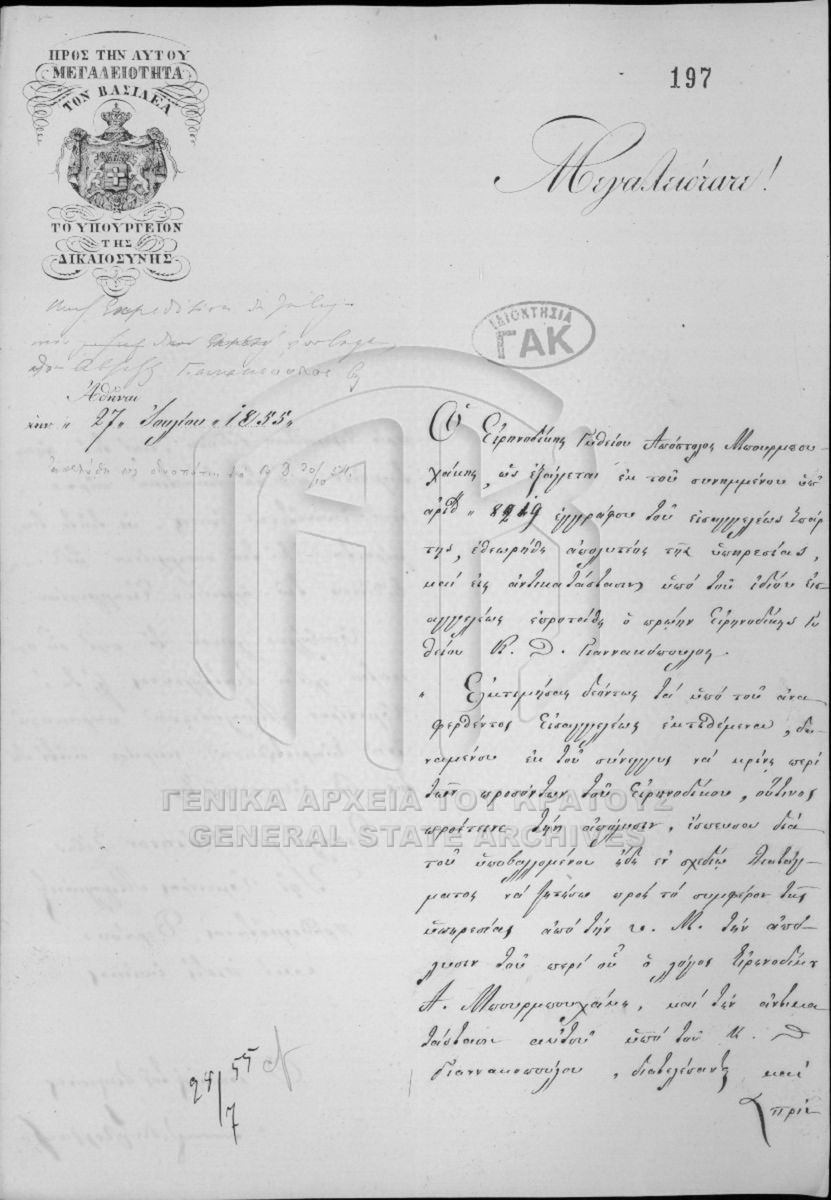 ΠΡΟΣ ΤΗΝ ΑΥΤΟΥ
ΜΕΓΑΛΕΙΟΤΗΤΑ
ΤΟΝ ΒΑΣΙΛΕΑ
ΤΟ ΥΠΟΥΡΓΕΙΟΝ
ΤΗΣ
ΔΙΚΑΙΟΣΥΝΗΣ
197
Μεγαλειότατε!
ΙΔΙΟΚΤΗΣΙΑ
ΓΑΚ
Ἀθῆναι
τὴν „ 27 „ Ἰουλίου „ 1855 „
Ὁ Εἰρηνοδίκης Γυθείου Ἀπόστολος Μπουρμπου-
χάκης, ὡς ἐξάγεται ἐκ τοῦ συνημμένου ὑπ'
ἀριθ „ 8219 ἐγγράφου τοῦ εἰσαγγελέως Σπάρ
της, ἐθεωρήθη ἀπολυτέος τῆς ὑπηρεσίας,
καὶ εἰς ἀντικατάστασιν ὑπὸ τοῦ ἰδίου Εἰσ
αγγελέως ἐπροτάθη ὁ πρώην Εἰρηνοδίκης Γυ
θείου Κ. Δ. Γιαννακόπουλος.
„ Ἐκτιμήσας δεόντως τὰ ὑπὸ τοῦ ἀνα
φερθέντος Εἰσαγγελέως ἐκτιθέμενα, δυ
ναμένου ἐκ τοῦ σύνεγγυς νὰ κρίνῃ περὶ
τῶν προσόντων τοῦ Εἰρηνοδίκου, οὗτινος
προέτεινε τὴν ἀπόλυσιν, ἔσπευσα διὰ
τοῦ ὑποβαλλομένου ὧδε ἐν σχεδίῳ Διατάγ
ματος νὰ ζητήσω πρὸς τὸ συμφέρον τῆς
ὑπηρεσίας ἀπὸ τὴν Υ. Μ. τὴν ἀπό
λυσιν τοῦ περὶ οὗ ὁ λόγος Εἰρηνοδίκου
Α. Μπουρμπουχάκη, καὶ τὴν ἀντικα
τάστασιν αὐτοῦ ὑπὸ τοῦ Κ. Δ
Γιαννακοπούλου, διατελέσαντος καὶ
πρὶν
28/7 55
ΓΕΝΙΚΑ ΑΡΧΕΙΑ ΤΟΥ ΚΡΑΤΟΥΣ
GENERAL STATE ARCHIVES